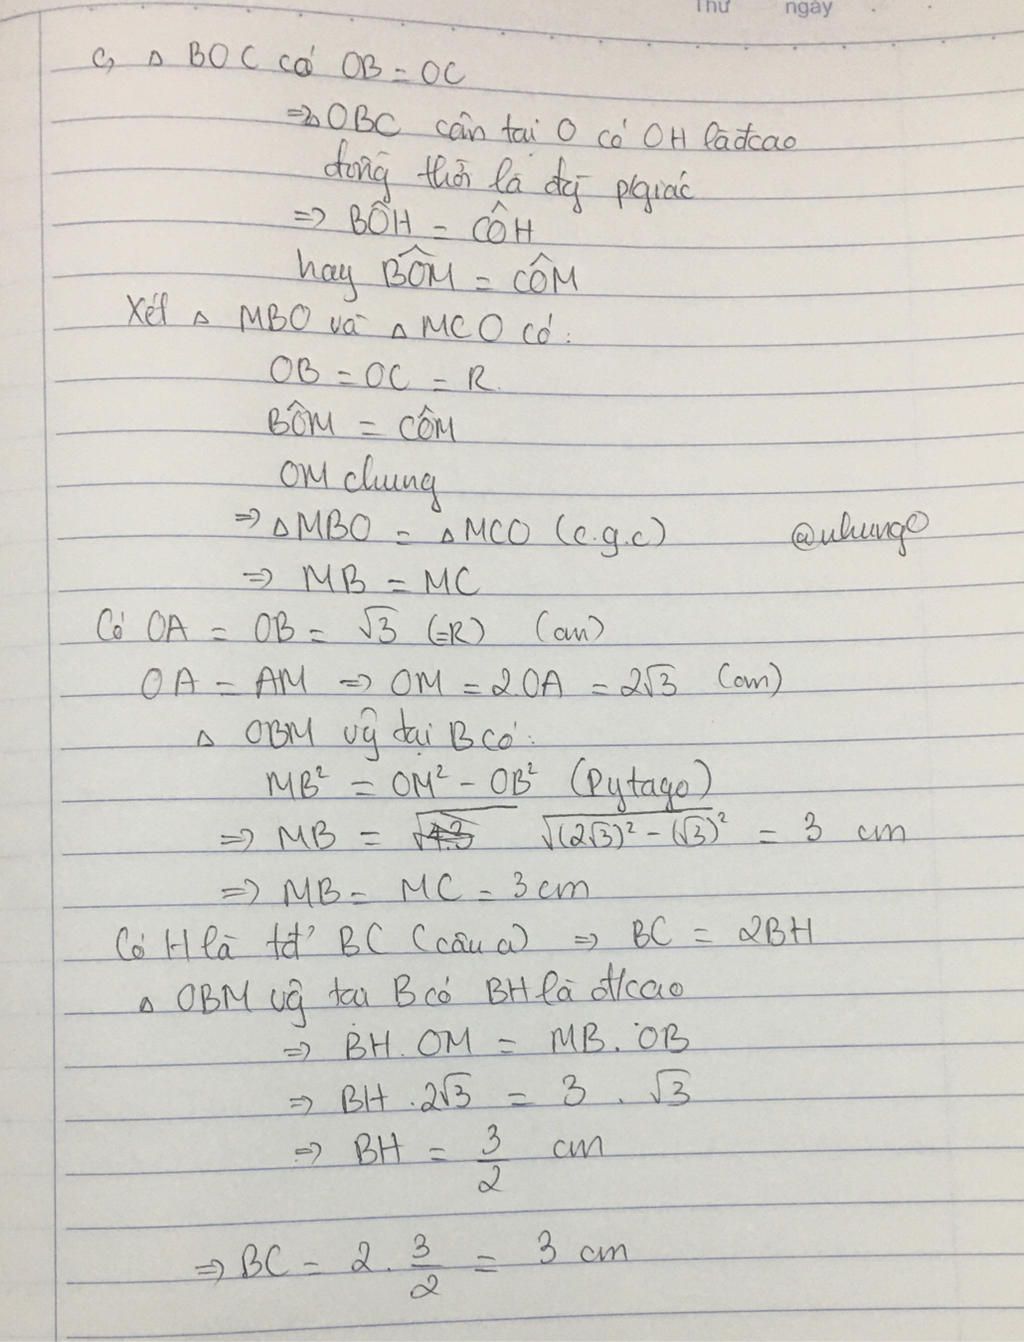 Thứ ngày
c, △ BOC có OB = OC
⇒△OBC cân tại O có OH là đcao
đồng thời là đg p/giác
⇒ BÔH = CÔH
hay BÔM = CÔM
Xét △ MBO và △ MCO có:
OB = OC = R.
BÔM = CÔM
OM chung
⇒ △MBO = △MCO (c.g.c) @nhung
⇒ MB = MC
Có OA = OB = √3 (=R) (cm)
OA = AM ⇒ OM = 2OA = 2√3 (cm)
△ OBM vg tại B có:
MB² = OM² - OB² (Pytago)
⇒ MB = √((2√3)² - (√3)²) = 3 cm
⇒ MB = MC = 3 cm
Có H là tđ' BC (câu a) ⇒ BC = 2BH
△ OBM vg tại B có BH là đ/cao
⇒ BH. OM = MB. OB
⇒ BH . 2√3 = 3 . √3
⇒ BH = 3/2 cm
⇒ BC = 2 . 3/2 = 3 cm